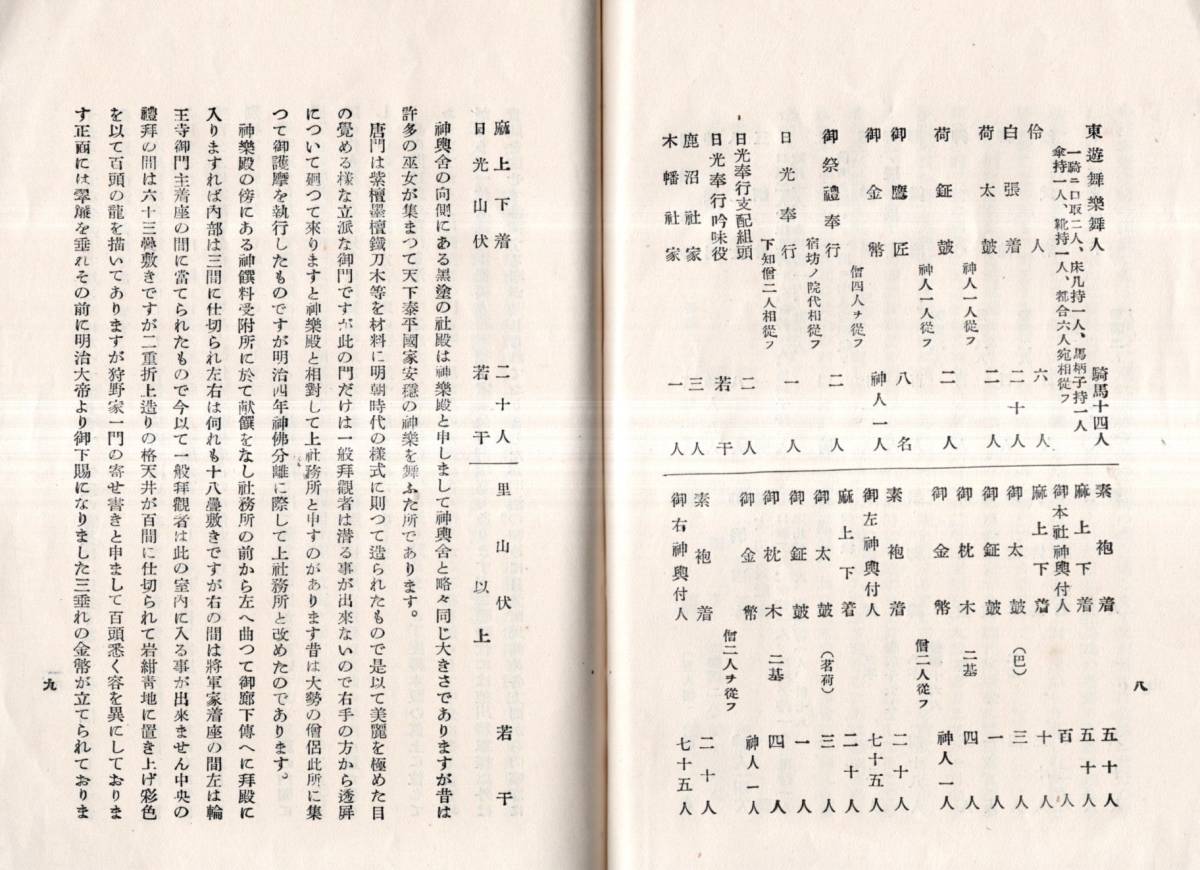 東遊舞樂舞人 騎馬十四人
一騎ニ口取二人、床几持一人、馬柄子持一人
傘持一人、靴持一人、都合六人宛相從フ
伶人 六人
白張着 二十人
荷太皷 二人
神人一人從フ
荷鉦皷 二人
神人一人從フ
御鷹匠 八名
御金幣 神人一人
僧四人ヲ從フ
御祭禮奉行 二人
宿坊ノ院代相從フ
日光奉行 一人
下知僧二人相從フ
日光奉行支配組頭 二人
日光奉行吟味役 若干
鹿沼社家 三人
木幡社家 一人
素袍着 五十人
麻上下着 五十人
御本社神輿付人 百人
麻上下着 十人
御太皷 (巴) 三人
御鉦皷 一人
御枕木 二基 四人
御金幣 神人一人
僧二人從フ
素袍着 二十人
御左神輿付人 七十五人
麻上下着 二十人
御太皷 (茗荷) 三人
御鉦皷 一人
御枕木 二基 四人
御金幣 神人一人
僧二人ヲ從フ
素袍着 二十人
御右神輿付人 七十五人
八
麻上下着 二十人
日光山伏 若干
里山伏 若干
以上
神輿舍の向側にある黑塗の社殿は神樂殿と申しまして神輿舍と略々同じ大きさでありますが昔は
許多の巫女が集まつて天下泰平國家安穩の神樂を舞ふた所であります。
唐門は紫檀墨檀鐵刀木等を材料に明朝時代の樣式に則つて造られたもので是以て美麗を極めた目
の覺める樣な立派な御門ですが此の門だけは一般拜觀者は潜る事が出來ないので右手の方から透屛
について廻つて來りますと神樂殿と相對して上社務所と申すのがあります昔は大勢の僧侶此所に集
つて御護摩を執行したものですが明治四年神佛分離に際して上社務所と改めたのであります。
神樂殿の傍にある神饌料受附所に於て献饌をなし社務所の前から左へ曲つて御廊下傳へに拜殿に
入りますれば内部は三間に仕切られ左右は何れも十八疊敷きですが右の間は將軍家着座の間左は輪
王寺御門主着座の間に當てられたもので今以て一般拜觀者は此の室内に入る事が出來ません中央の
禮拜の間は六十三疊敷きですが二重折上造りの格天井が百間に仕切られて岩紺靑地に置き上げ彩色
を以て百頭の龍を描いてありますが狩野家一門の寄せ書きと申まして百頭悉く容を異にしておりま
す正面には翠簾を垂れその前に明治大帝より御下賜になりました三垂れの金幣が立てられておりま
九